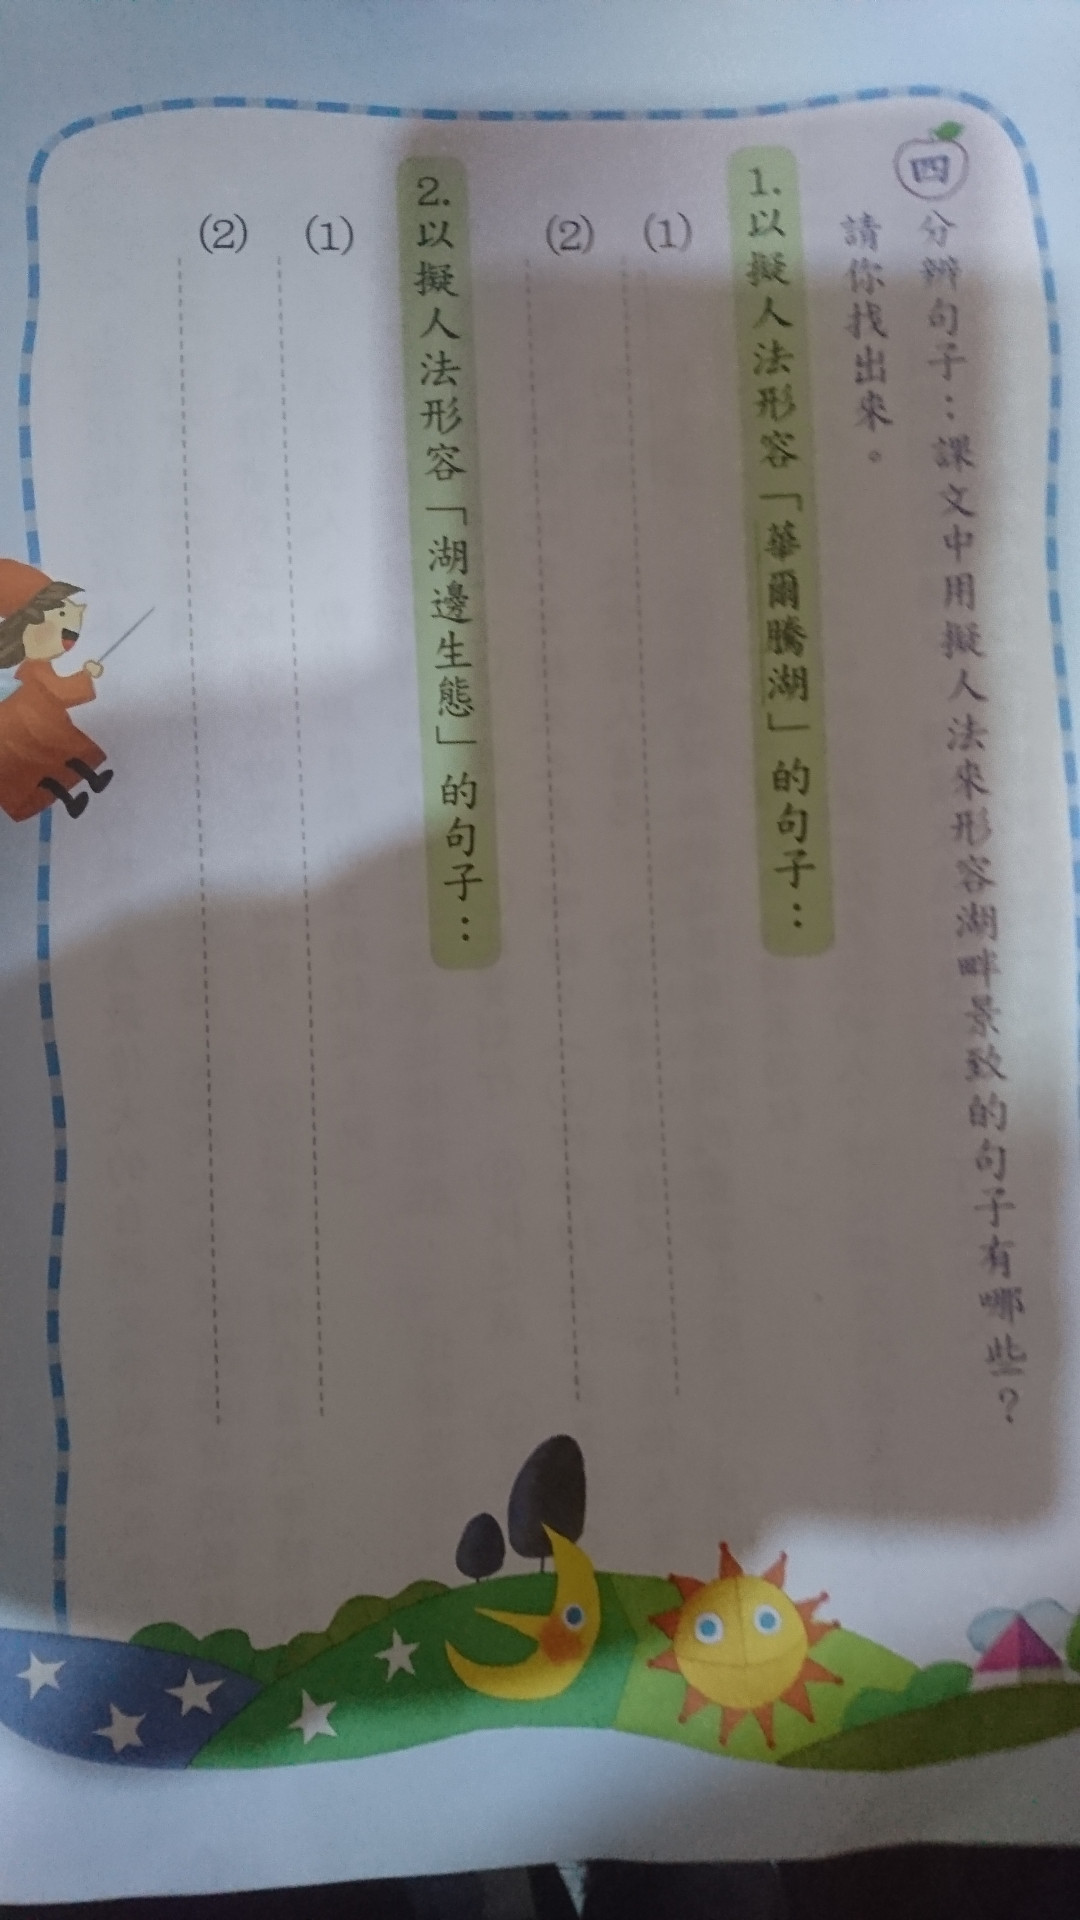 四 分辨句子：課文中用擬人法來形容湖畔景致的句子有哪些？
請你找出來。
1.以擬人法形容「華爾騰湖」的句子：
(1)
(2)
2.以擬人法形容「湖邊生態」的句子：
(1)
(2)